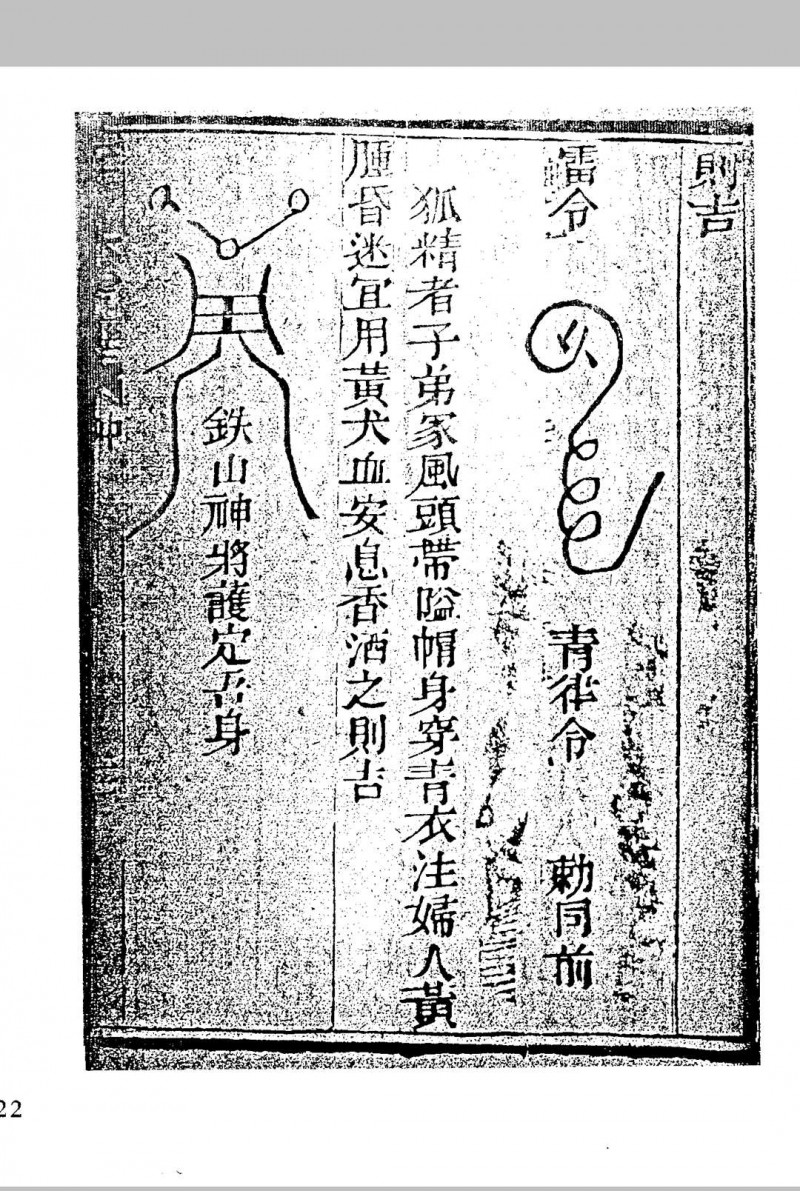 則吉
雷令
青律令
勅同前
狐精者子弟冢風頭帶隘帽身穿青衣注婦人黃
腫昏迷宜用黃犬血安息香洒之則吉
鉄山神將護定吾身
22